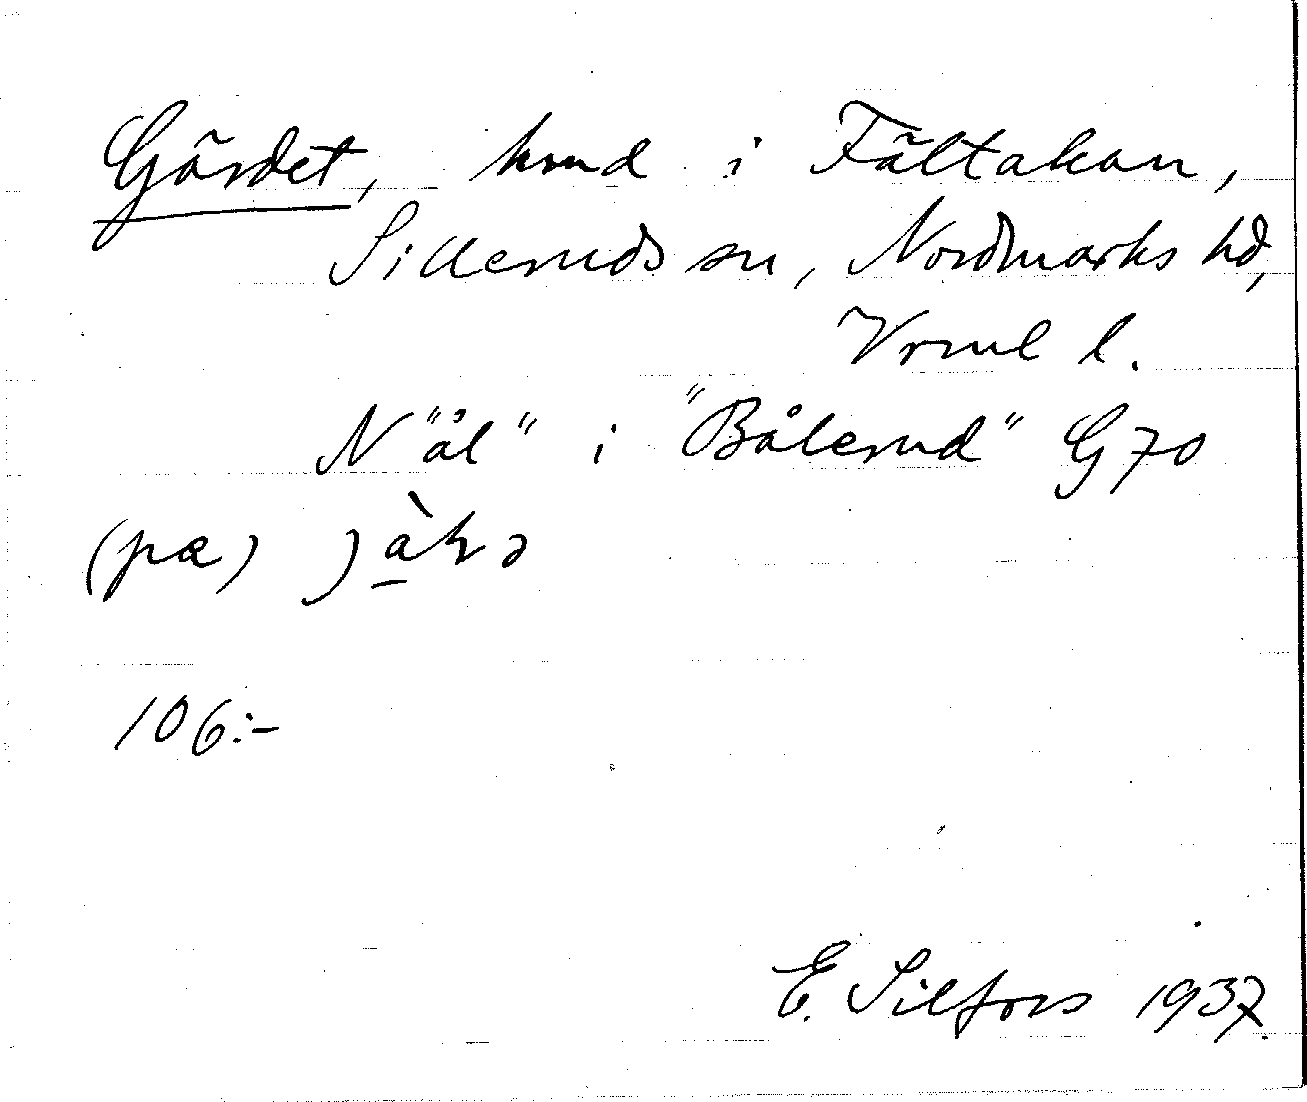 Gärdet, hmd i Fältakan,
Silleruds sn, Nordmarks hd,
Vrml l.
N "ål" i "Bålerud" G 70
(pæ) jàkə
106:-
E. Silfors 1937.